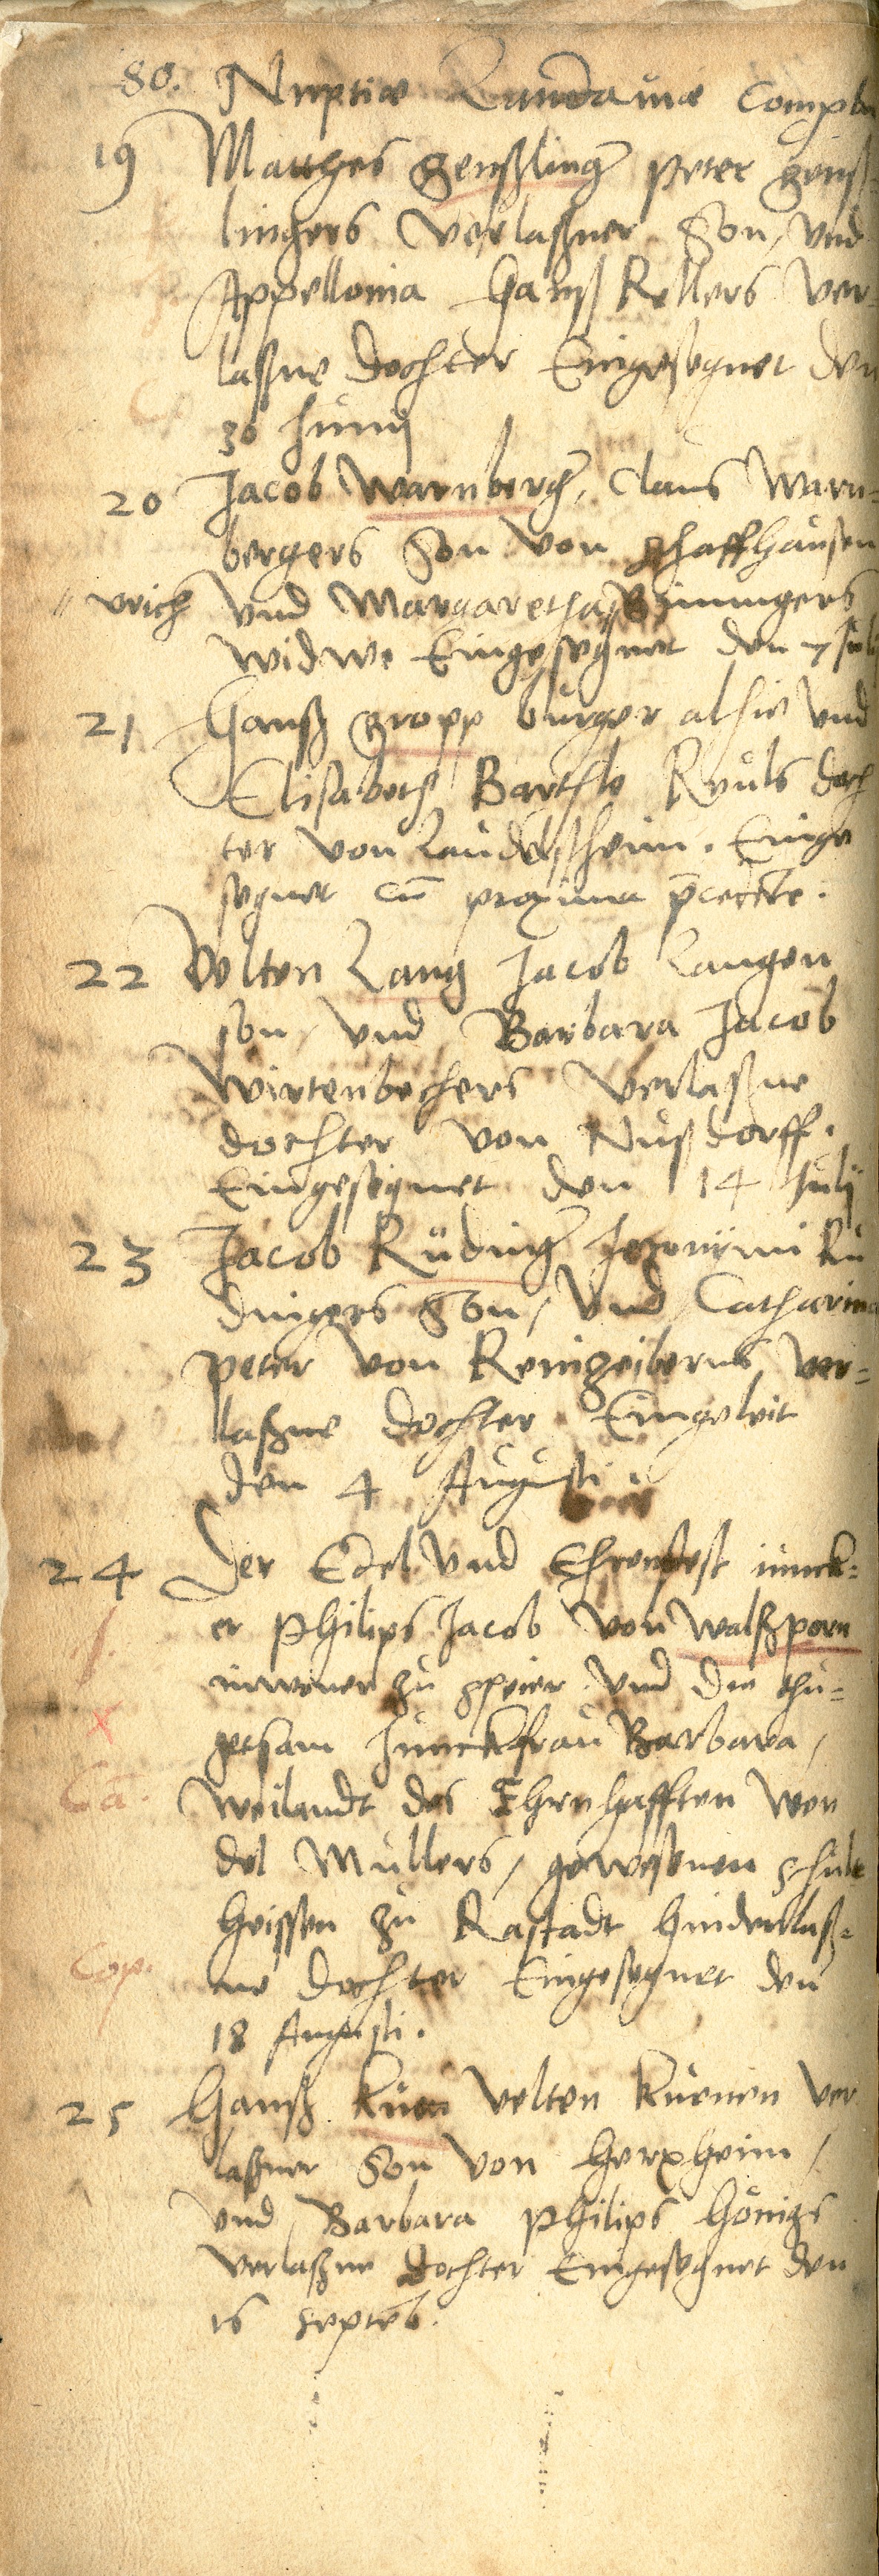 80. Nuptiæ Landauiæ
19 Matthes Genßling Peter Genß=
lingers verlaßner Son, vnd
Appellonia Hanß Kellers ver=
laßne dochter Eingesegnet den
30 Junij
20 Jacob Warnberg, Claus Warn=
bergers Son von Schaffhausen
vnd Margaretha
widwe Eingesegnet den 7 Julij
21 Hanß Gropp burger alhie vnd
Elisabeth Barthle Reuls doch
ter von. Einge
segnet cū proxima
22 Velten Lang Jacob Langen
son, vnd Barbara Jacob
Wirtenbechers verlaßne
dochter von Nußdorff.
Eingesegnet den 14 Julij
23 Jacob Rüding Jeronimi Rü
dingers Son, vnd Catharina
Peter von verlaßne
laßne dochter Eingeleit
den 4 Augusti.
24 Der Edel vnd Ehrenfest Junck=
er Philips Jacob von Walßporn
inwoner zu Speier vnd die thu=
getsam Junckfrau Barbara,
Ca. weilandt des Ehrnhafften Wen
del Müllers, gewesenen schult
heissen zu Rastadt hinderlaß=
Cop. ne dochter Eingesegnet den
18 Augusti.
25 Hanß Kuen Velten Kuenen ver
laßner Son von Herxheim,
vnd Barbara Philips Hönigs
verlaßne dochter Eingesegnet den
16 Septēb.